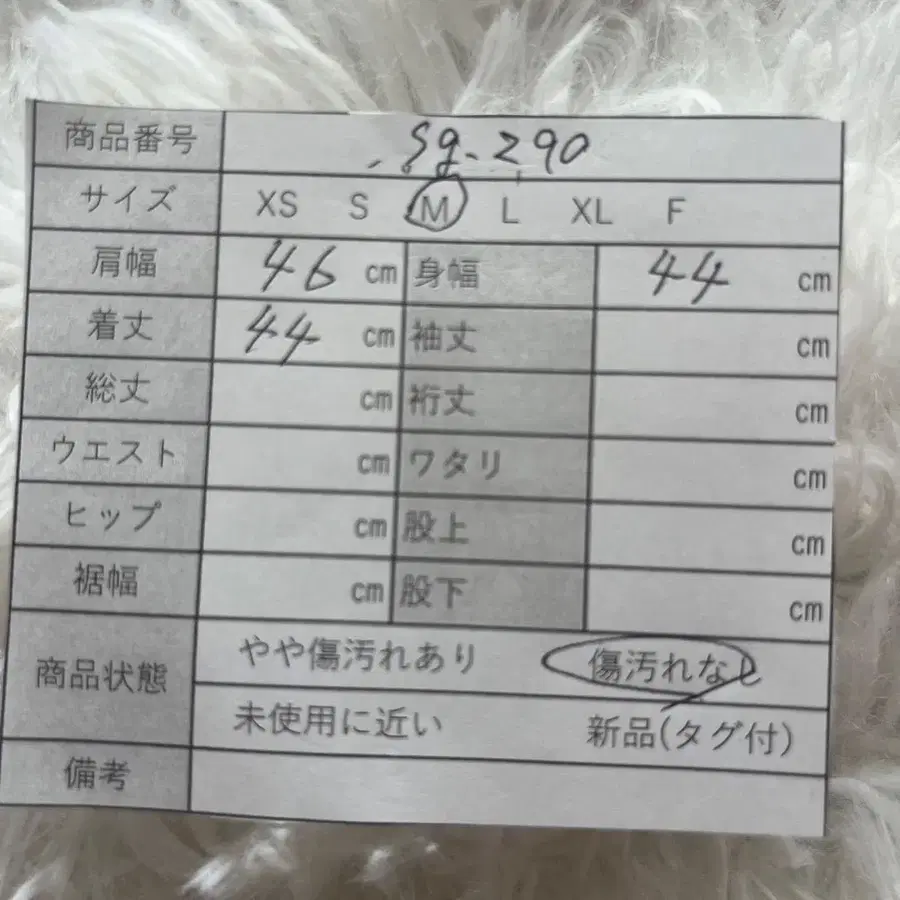 商品番号 Sg-290
サイズ XS S M L XL F
肩幅 46 cm 身幅 44 cm
着丈 44 cm 袖丈 cm
総丈 cm 裄丈 cm
ウエスト cm ワタリ cm
ヒップ cm 股上 cm
裾幅 cm 股下 cm
商品状態 やや傷汚れあり 傷汚れなし
未使用に近い 新品(タグ付)
備考